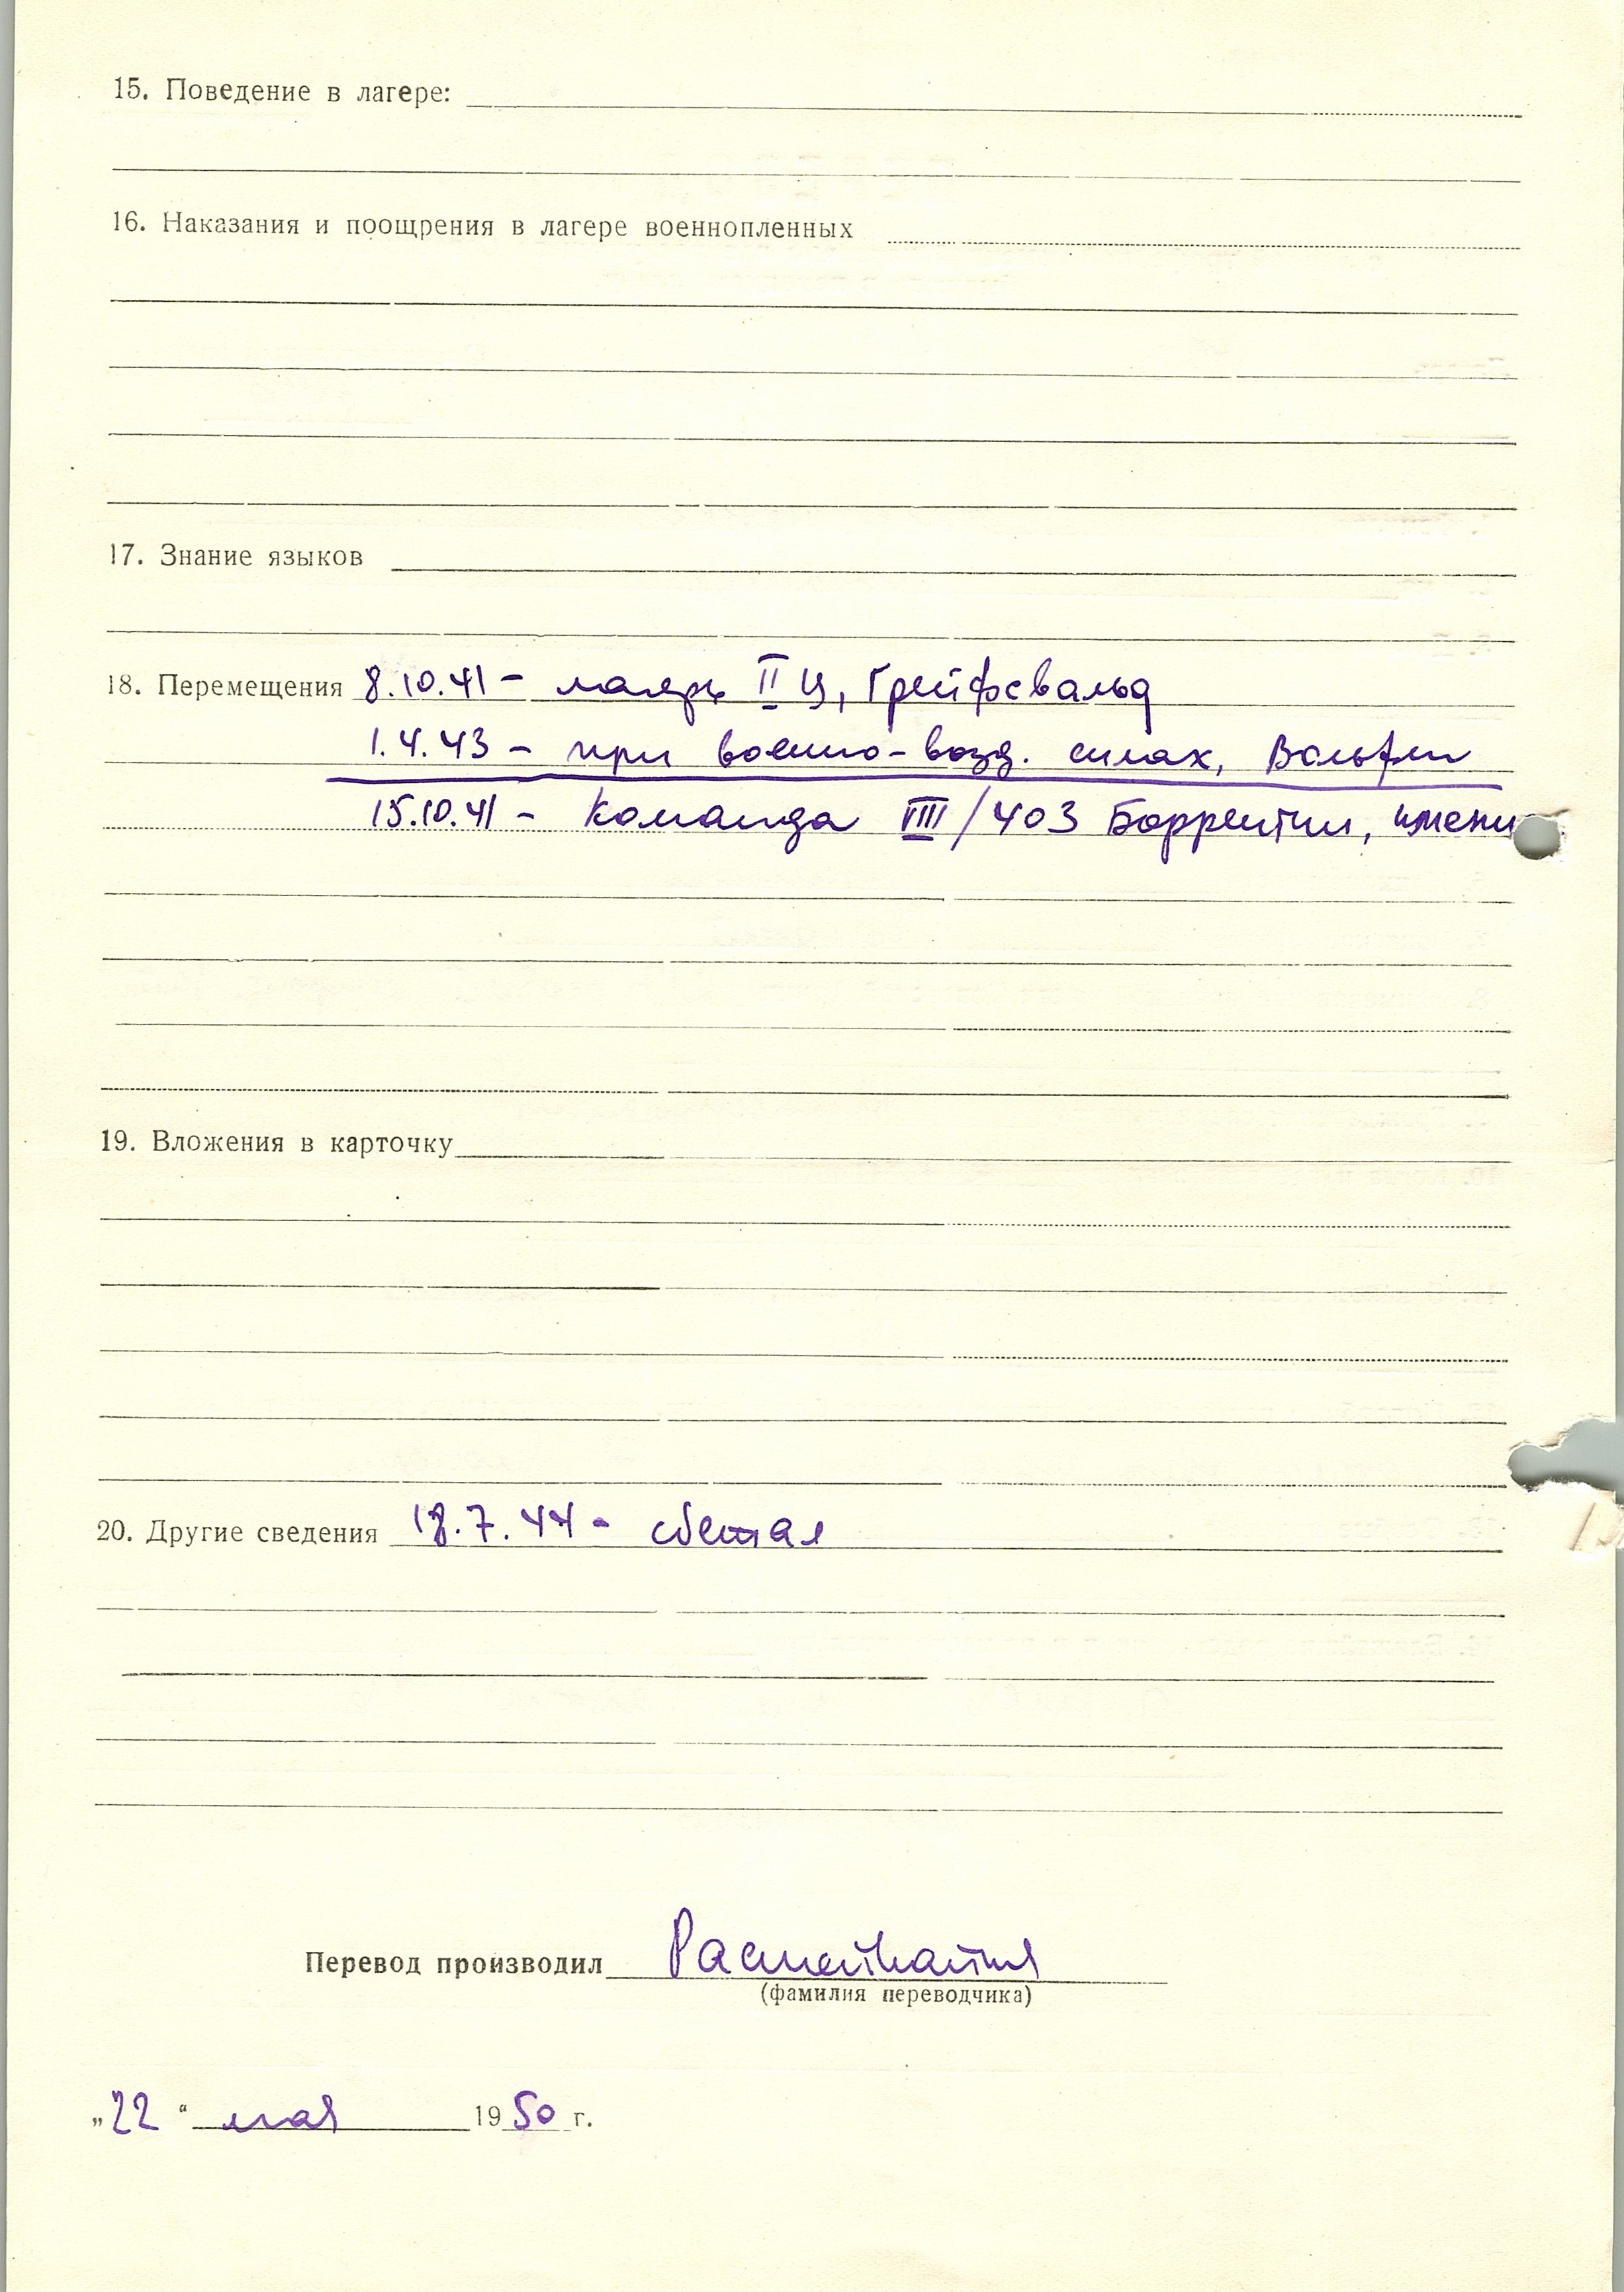 15. Поведение в лагере:
16. Наказания и поощрения в лагере военнопленных
17. Знание языков
18. Перемещения 8.10.41 - лагерь II Ц, Грейфсвальд
1.4.43 - при военно-возд. силах,
15.10.41 - команда VIII/403 Боррентин, имени
19. Вложения в карточку
20. Другие сведения 18.7.44 - сбежал
Перевод производил
(фамилия переводчика)
„22“ мая 1950 г.